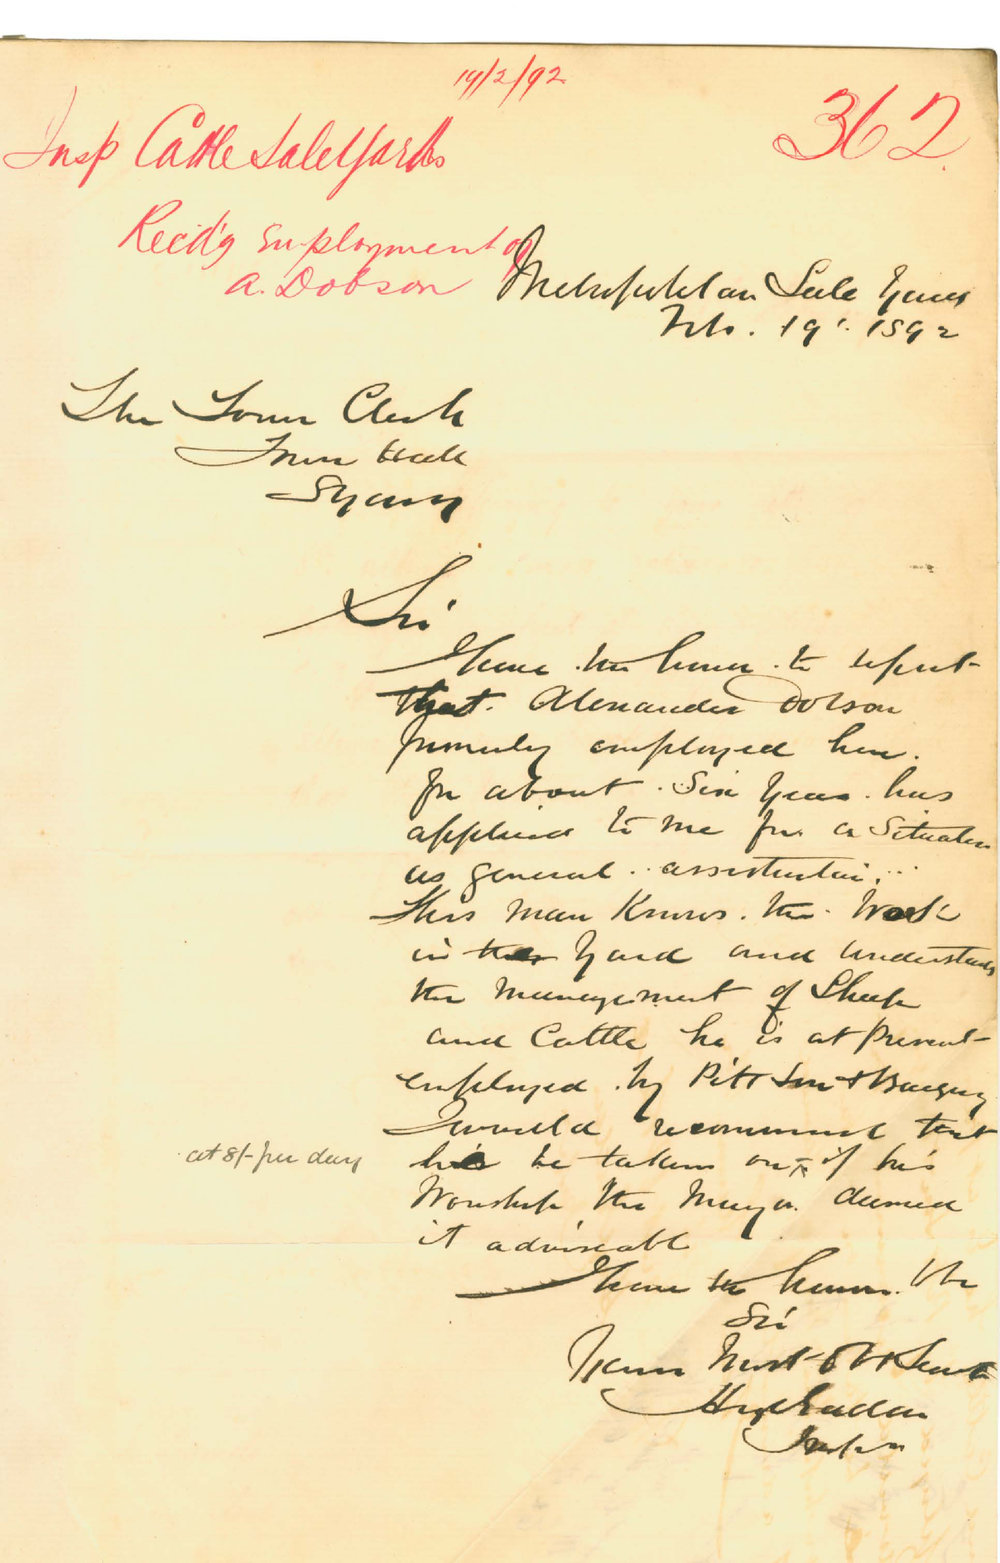 19/2/92
362
Insp Cattle SaleYards
Recd'g Employment of
A. Dobson
Metropolitan Sale Yards
Feb. 19th 1892
The Town Clerk
Town Hall
Sydney
Sir
I have the honor to report
that Alexander Dobson
formerly employed here
for about Six Years has
applied to me for a Situation
as general assistant
This man Knows the Work
in the Yard and understands
the management of Sheep
and Cattle he is at Present
employed by Pitt Son & Badgery
I would recommend that
he be taken on if his
Worship the Mayor deemed
it adviseable
at 8/- per day
I have the honor to be
Sir
Your Most Obt Servt
Inspr